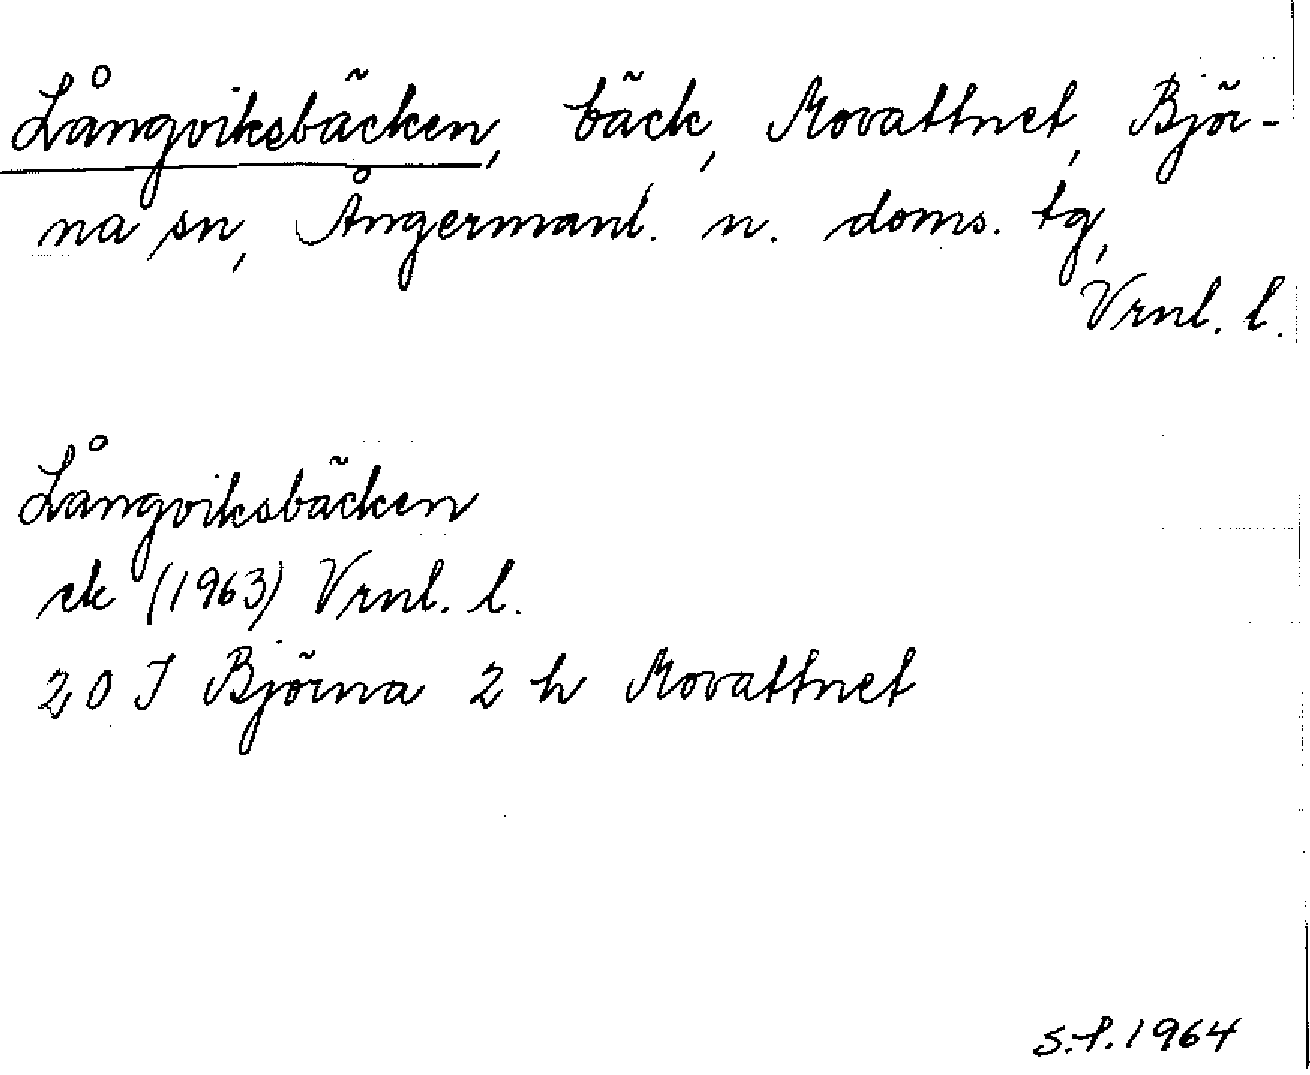 Långviksbäcken, bäck, Movattnet, Björ-
na sn, Ångermanl. n. doms. tg,
Vrnl. l.
Långviksbäcken
ek (1963) Vrnl. l.
20 J Björna 2 h Movattnet
S.P. 1964